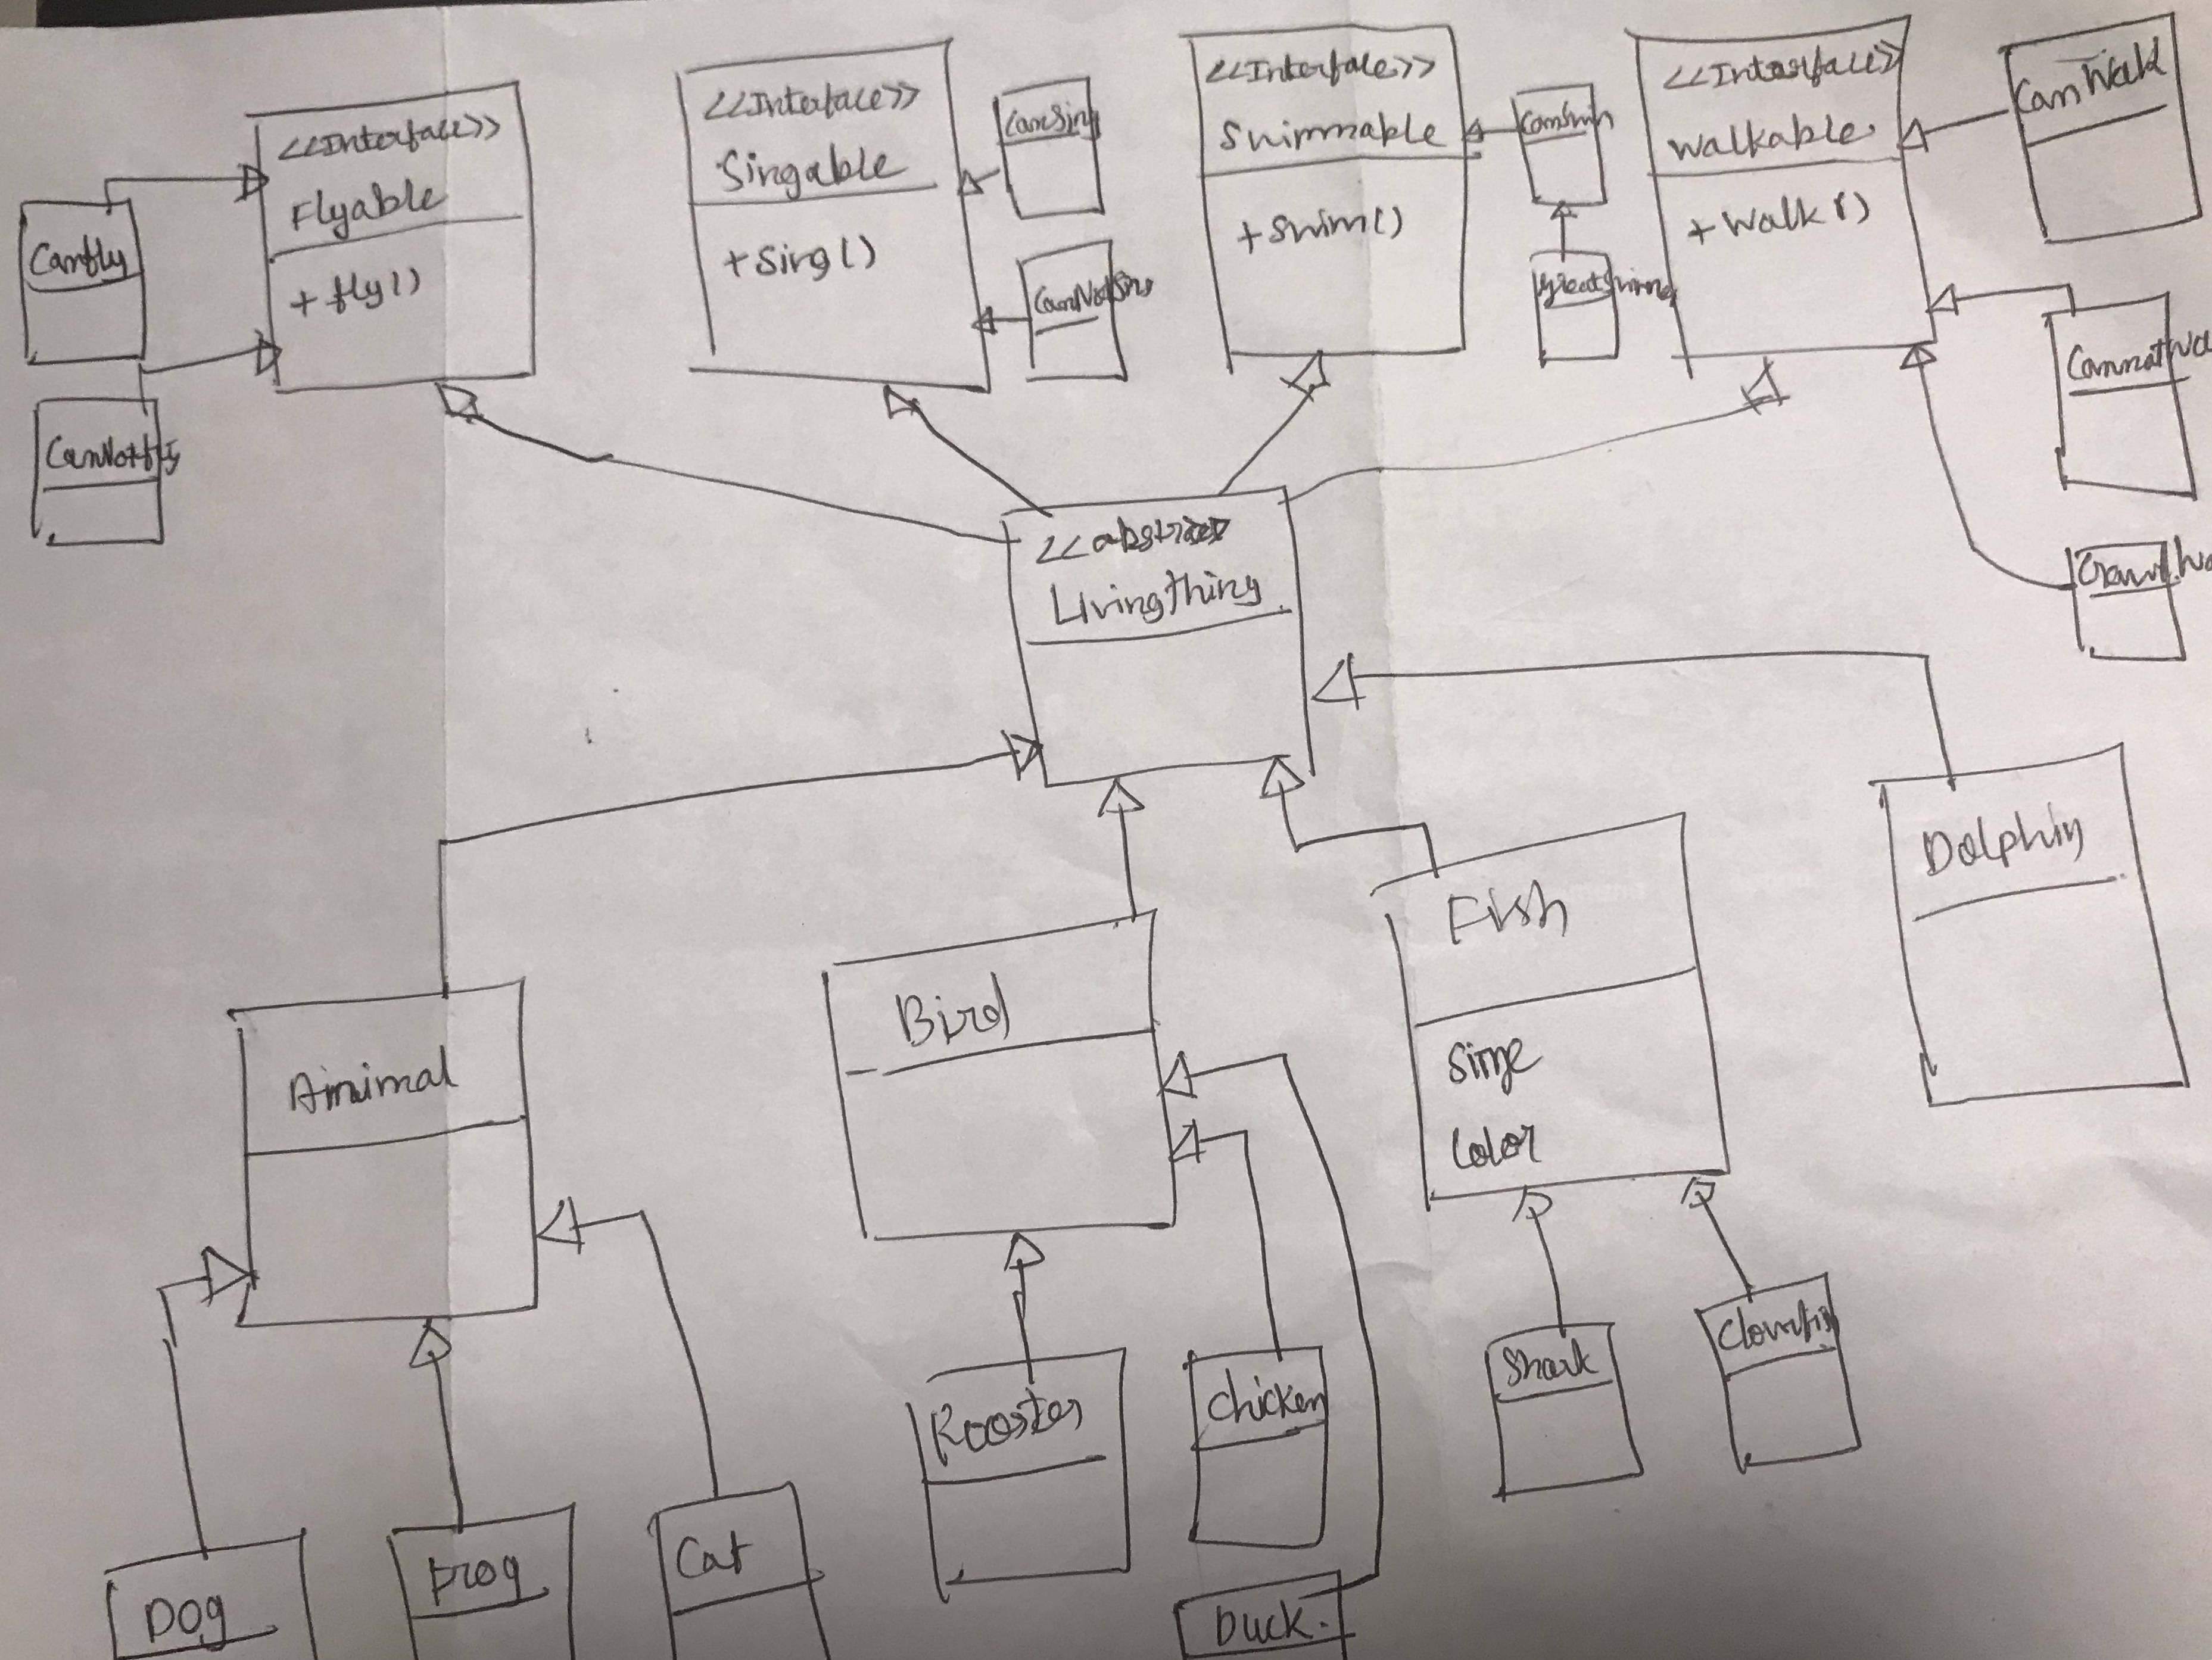 <<Interface>>
Flyable
+ fly()
Canfly
CanNotfly
<<Interface>>
Singable
+ Sing()
CanSing
CanNotSing
<<Interface>>
Swimmable
+ Swim()
CanSwim
GreatSwimmer
<<Interface>>
Walkable
+ Walk()
CanWalk
<<abstract>>
LivingThing
Animal
Bird
Fish
Color
Dolphin
Dog
Frog
Cat
Rooster
Chicken
Duck.
Shark
Clownfish